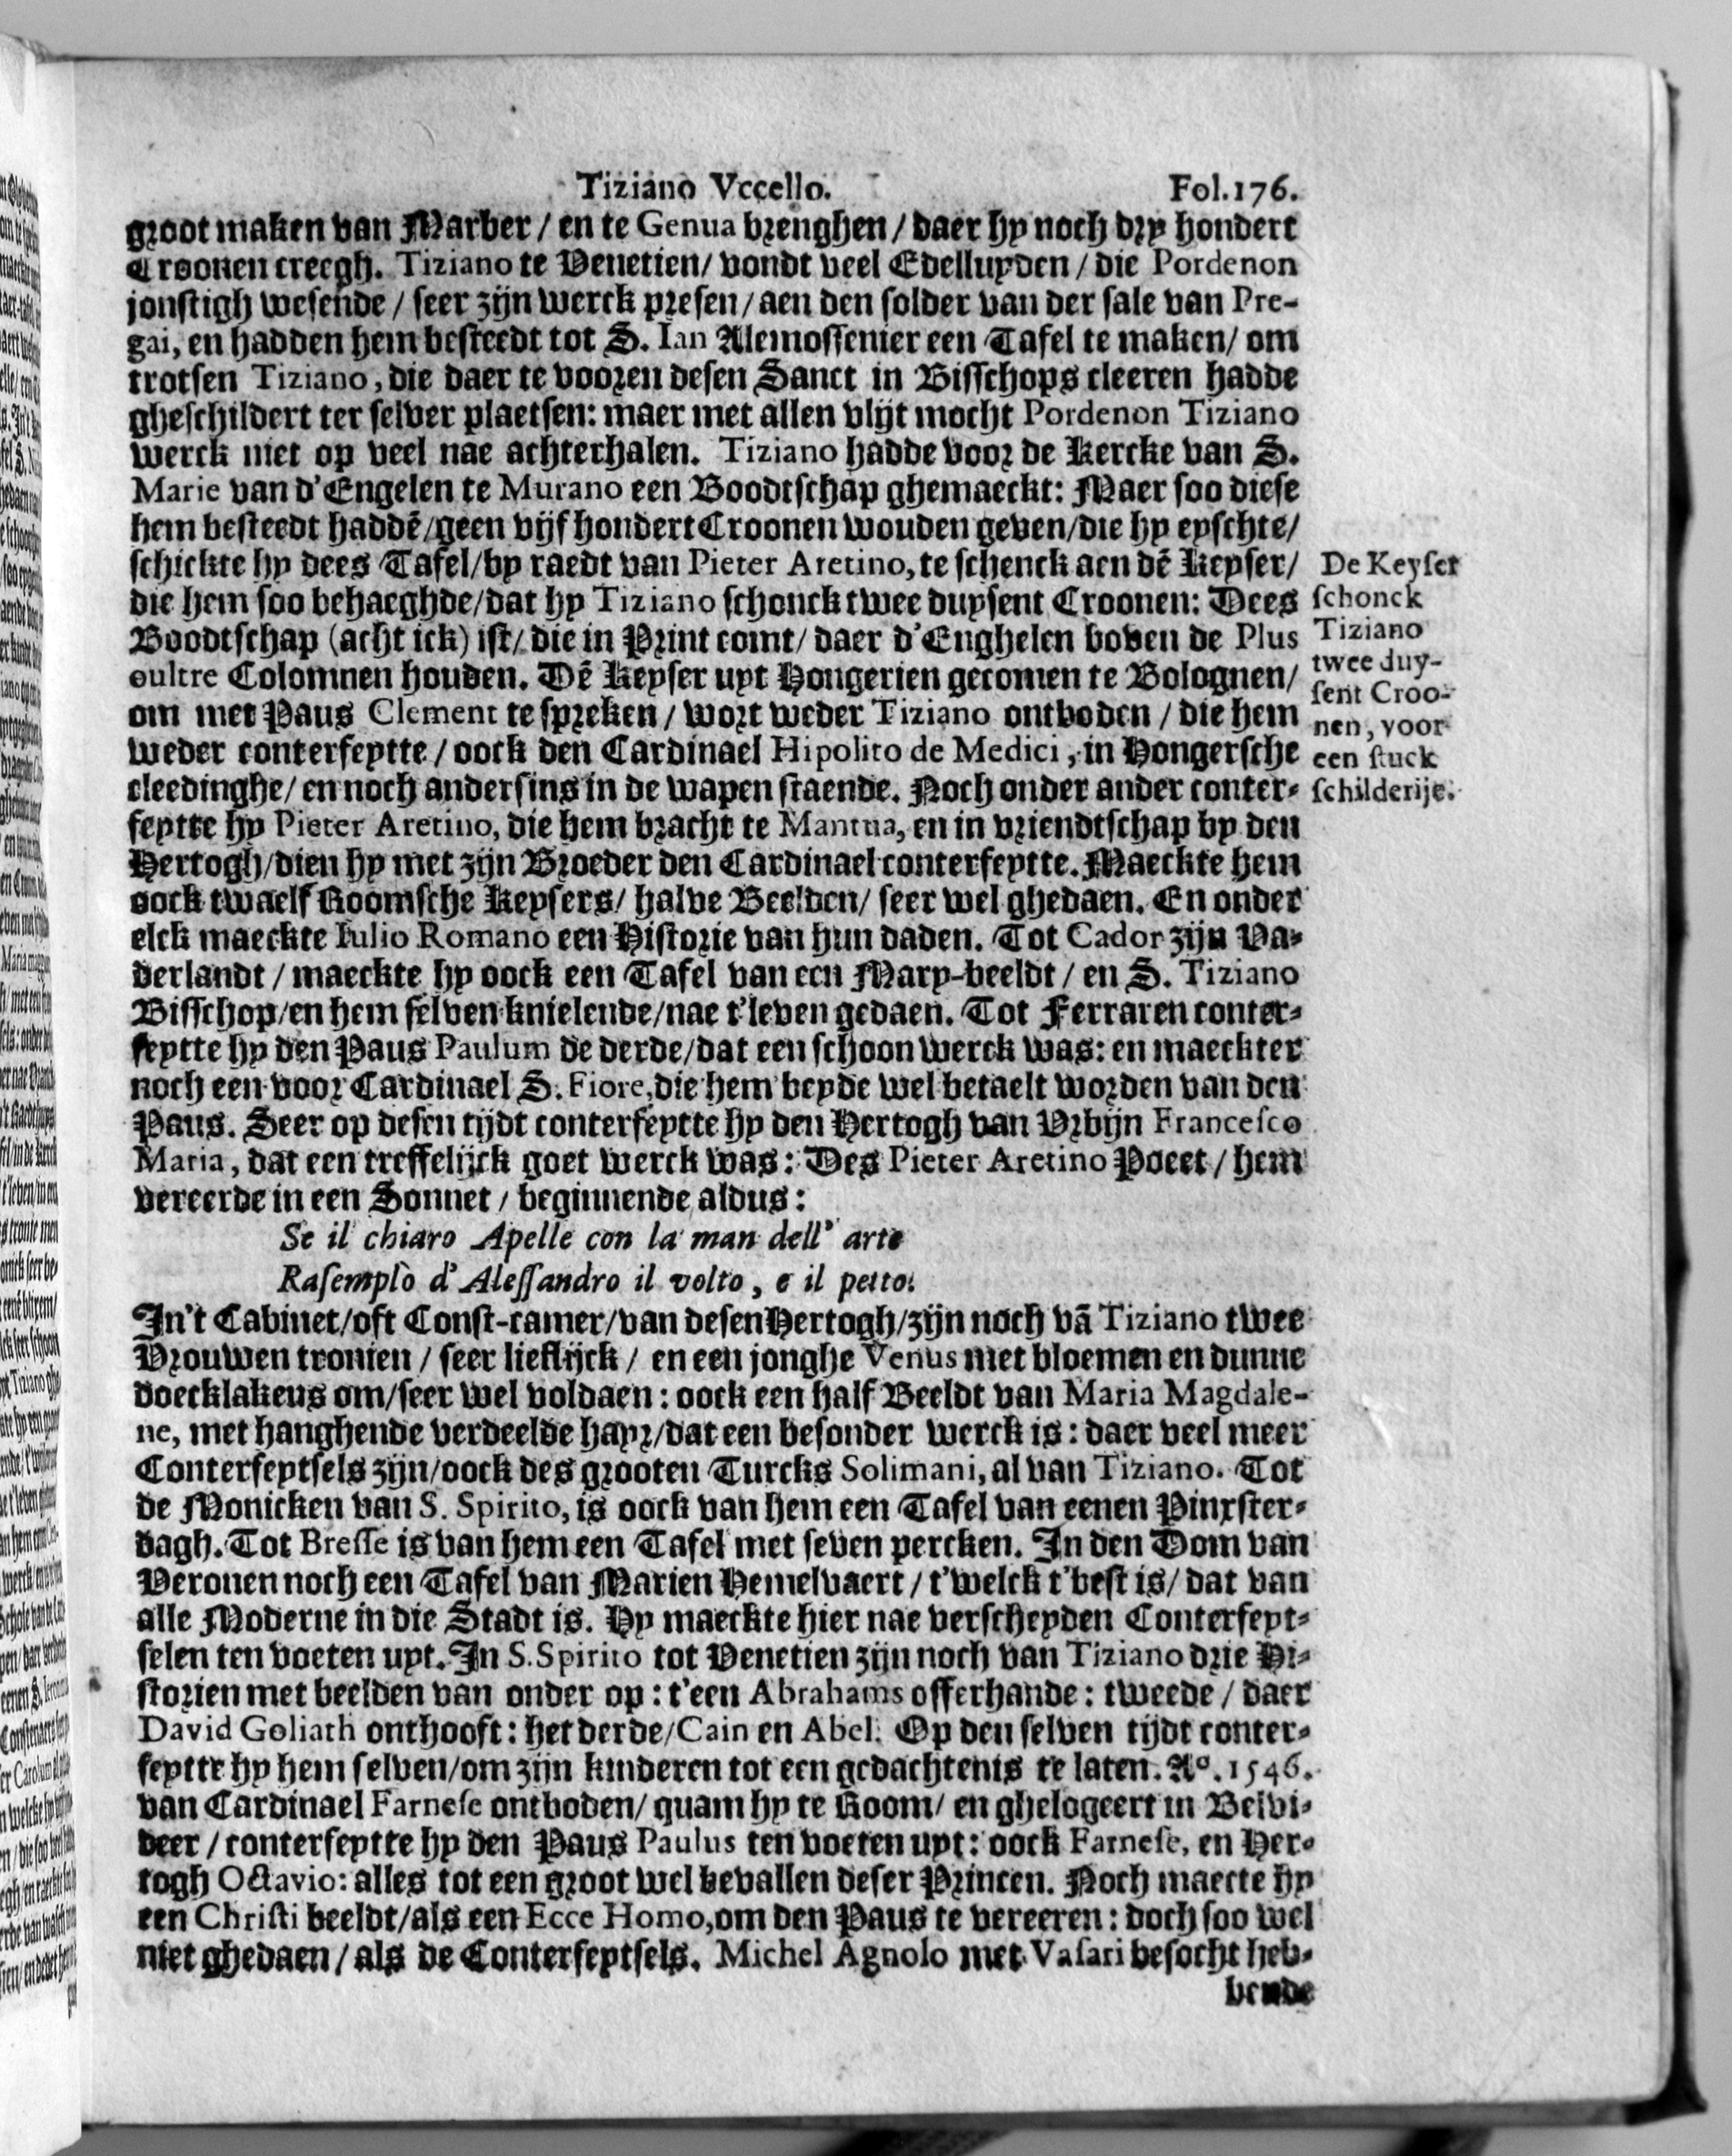 Tiziano Vccello. Fol.176.
groot maken van Marber / en te Genua brenghen / daer hy noch dry hondert
Croonen creegh. Tiziano te Venetien / vondt veel Edelluyden / die Pordenon
jonstigh wesende / seer zijn werck presen / aen den solder van der sale van Pre-
gai, en hadden hem besteedt tot S. Ian Alemossenier een Tafel te maken / om
trotsen Tiziano, die daer te vooren desen Sanct in Bisschops cleeren hadde
gheschildert ter selver plaetsen: maer met allen vlijt mocht Pordenon Tiziano
werck niet op veel nae achterhalen. Tiziano hadde voor de Kercke van S.
Marie van d'Engelen te Murano een Boodtschap ghemaeckt: Maer soo diese
hem besteedt haddē / geen vijf hondert Croonen wouden geven / die hy eyschte /
schickte hy dees Tafel / by raedt van Pieter Aretino, te schenck aen dē Keyser /
die hem soo behaeghde / dat hy Tiziano schonck twee duysent Croonen: Dees
Boodtschap (acht ick) ist / die in Print comt / daer d'Enghelen boven de Plus
oultre Colomnen houden. Dē Keyser uyt Hongerien gecomen te Bolognen /
om met Paus Clement te spreken / wort weder Tiziano ontboden / die hem
weder conterfeytte / oock den Cardinael Hipolito de Medici, in Hongersche
cleedinghe / en noch andersins in de wapen staende. Noch onder ander conter-
feytte hy Pieter Aretino, die hem bracht te Mantua, en in vriendtschap by den
Hertogh / dien hy met zijn Broeder den Cardinael conterfeytte. Maeckte hem
oock twaelf Roomsche Keysers / halve Beelden / seer wel ghedaen. En onder
elck maeckte Iulio Romano een Historie van hun daden. Tot Cador zijn Va-
derlandt / maeckte hy oock een Tafel van een Mary-beeldt / en S. Tiziano
Bisschop / en hem selven knielende / nae t'leven gedaen. Tot Ferraren conter-
feytte hy den Paus Paulum de derde / dat een schoon werck was: en maeckter
noch een voor Cardinael S. Fiore, die hem beyde wel betaelt worden van den
Paus. Seer op desen tijdt conterfeytte hy den Hertogh van Vrbijn Francesco
Maria, dat een treffelijck goet werck was: Des Pieter Aretino Poeet / hem
vereerde in een Sonnet / beginnende aldus:
Se il chiaro Apelle con la man dell' arte
Rasemplò d'Alessandro il volto, e il petto.
In't Cabinet / oft Const-camer / van desen Hertogh / zijn noch vā Tiziano twee
Vrouwen tronien / seer lieflijck / en een jonghe Venus met bloemen en dunne
doecklakens om / seer wel voldaen: oock een half Beeldt van Maria Magdale-
ne, met hanghende verdeelde hayr / dat een besonder werck is: daer veel meer
Conterfeytsels zijn / oock des grooten Turcks Solimani, al van Tiziano. Tot
de Monicken van S. Spirito, is oock van hem een Tafel van eenen Pinxster-
dagh. Tot Bresse is van hem een Tafel met seven percken. In den Dom van
Veronen noch een Tafel van Marien Hemelvaert / t'welck t'best is / dat van
alle Moderne in die Stadt is. Hy maeckte hier nae verscheyden Conterfeyt-
selen ten voeten uyt. In S. Spirito tot Venetien zijn noch van Tiziano drie Hi-
storien met beelden van onder op: t'een Abrahams offerhande: tweede / daer
David Goliath onthooft: het derde / Cain en Abel. Op den selven tijdt conter-
feytte hy hem selven / om zijn kinderen tot een gedachtenis te laten. Aº. 1546.
van Cardinael Farnese ontboden / quam hy te Room / en ghelogeert in Belvi-
deer / conterfeytte hy den Paus Paulus ten voeten uyt: oock Farnese, en Her-
togh Octavio: alles tot een groot wel bevallen deser Princen. Noch maecte hy
een Christi beeldt / als een Ecce Homo, om den Paus te vereeren: doch soo wel
niet ghedaen / als de Conterfeytsels. Michel Agnolo met Vasari besocht heb-
bende
De Keyser
schonck
Tiziano
twee duy-
sent Croo-
nen, voor
een stuck
schilderije.